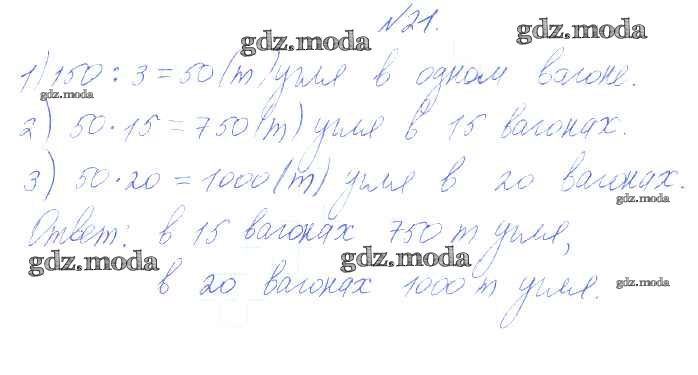 №21.
gdz.moda gdz.moda
1) 150 : 3 = 50 (т) угля в одном вагоне.
gdz.moda
2) 50 · 15 = 750 (т) угля в 15 вагонах.
3) 50 · 20 = 1000 (т) угля в 20 вагонах.
gdz.moda
Ответ: в 15 вагонах 750 т угля,
gdz.moda gdz.moda
в 20 вагонах 1000 т угля.
gdz.moda